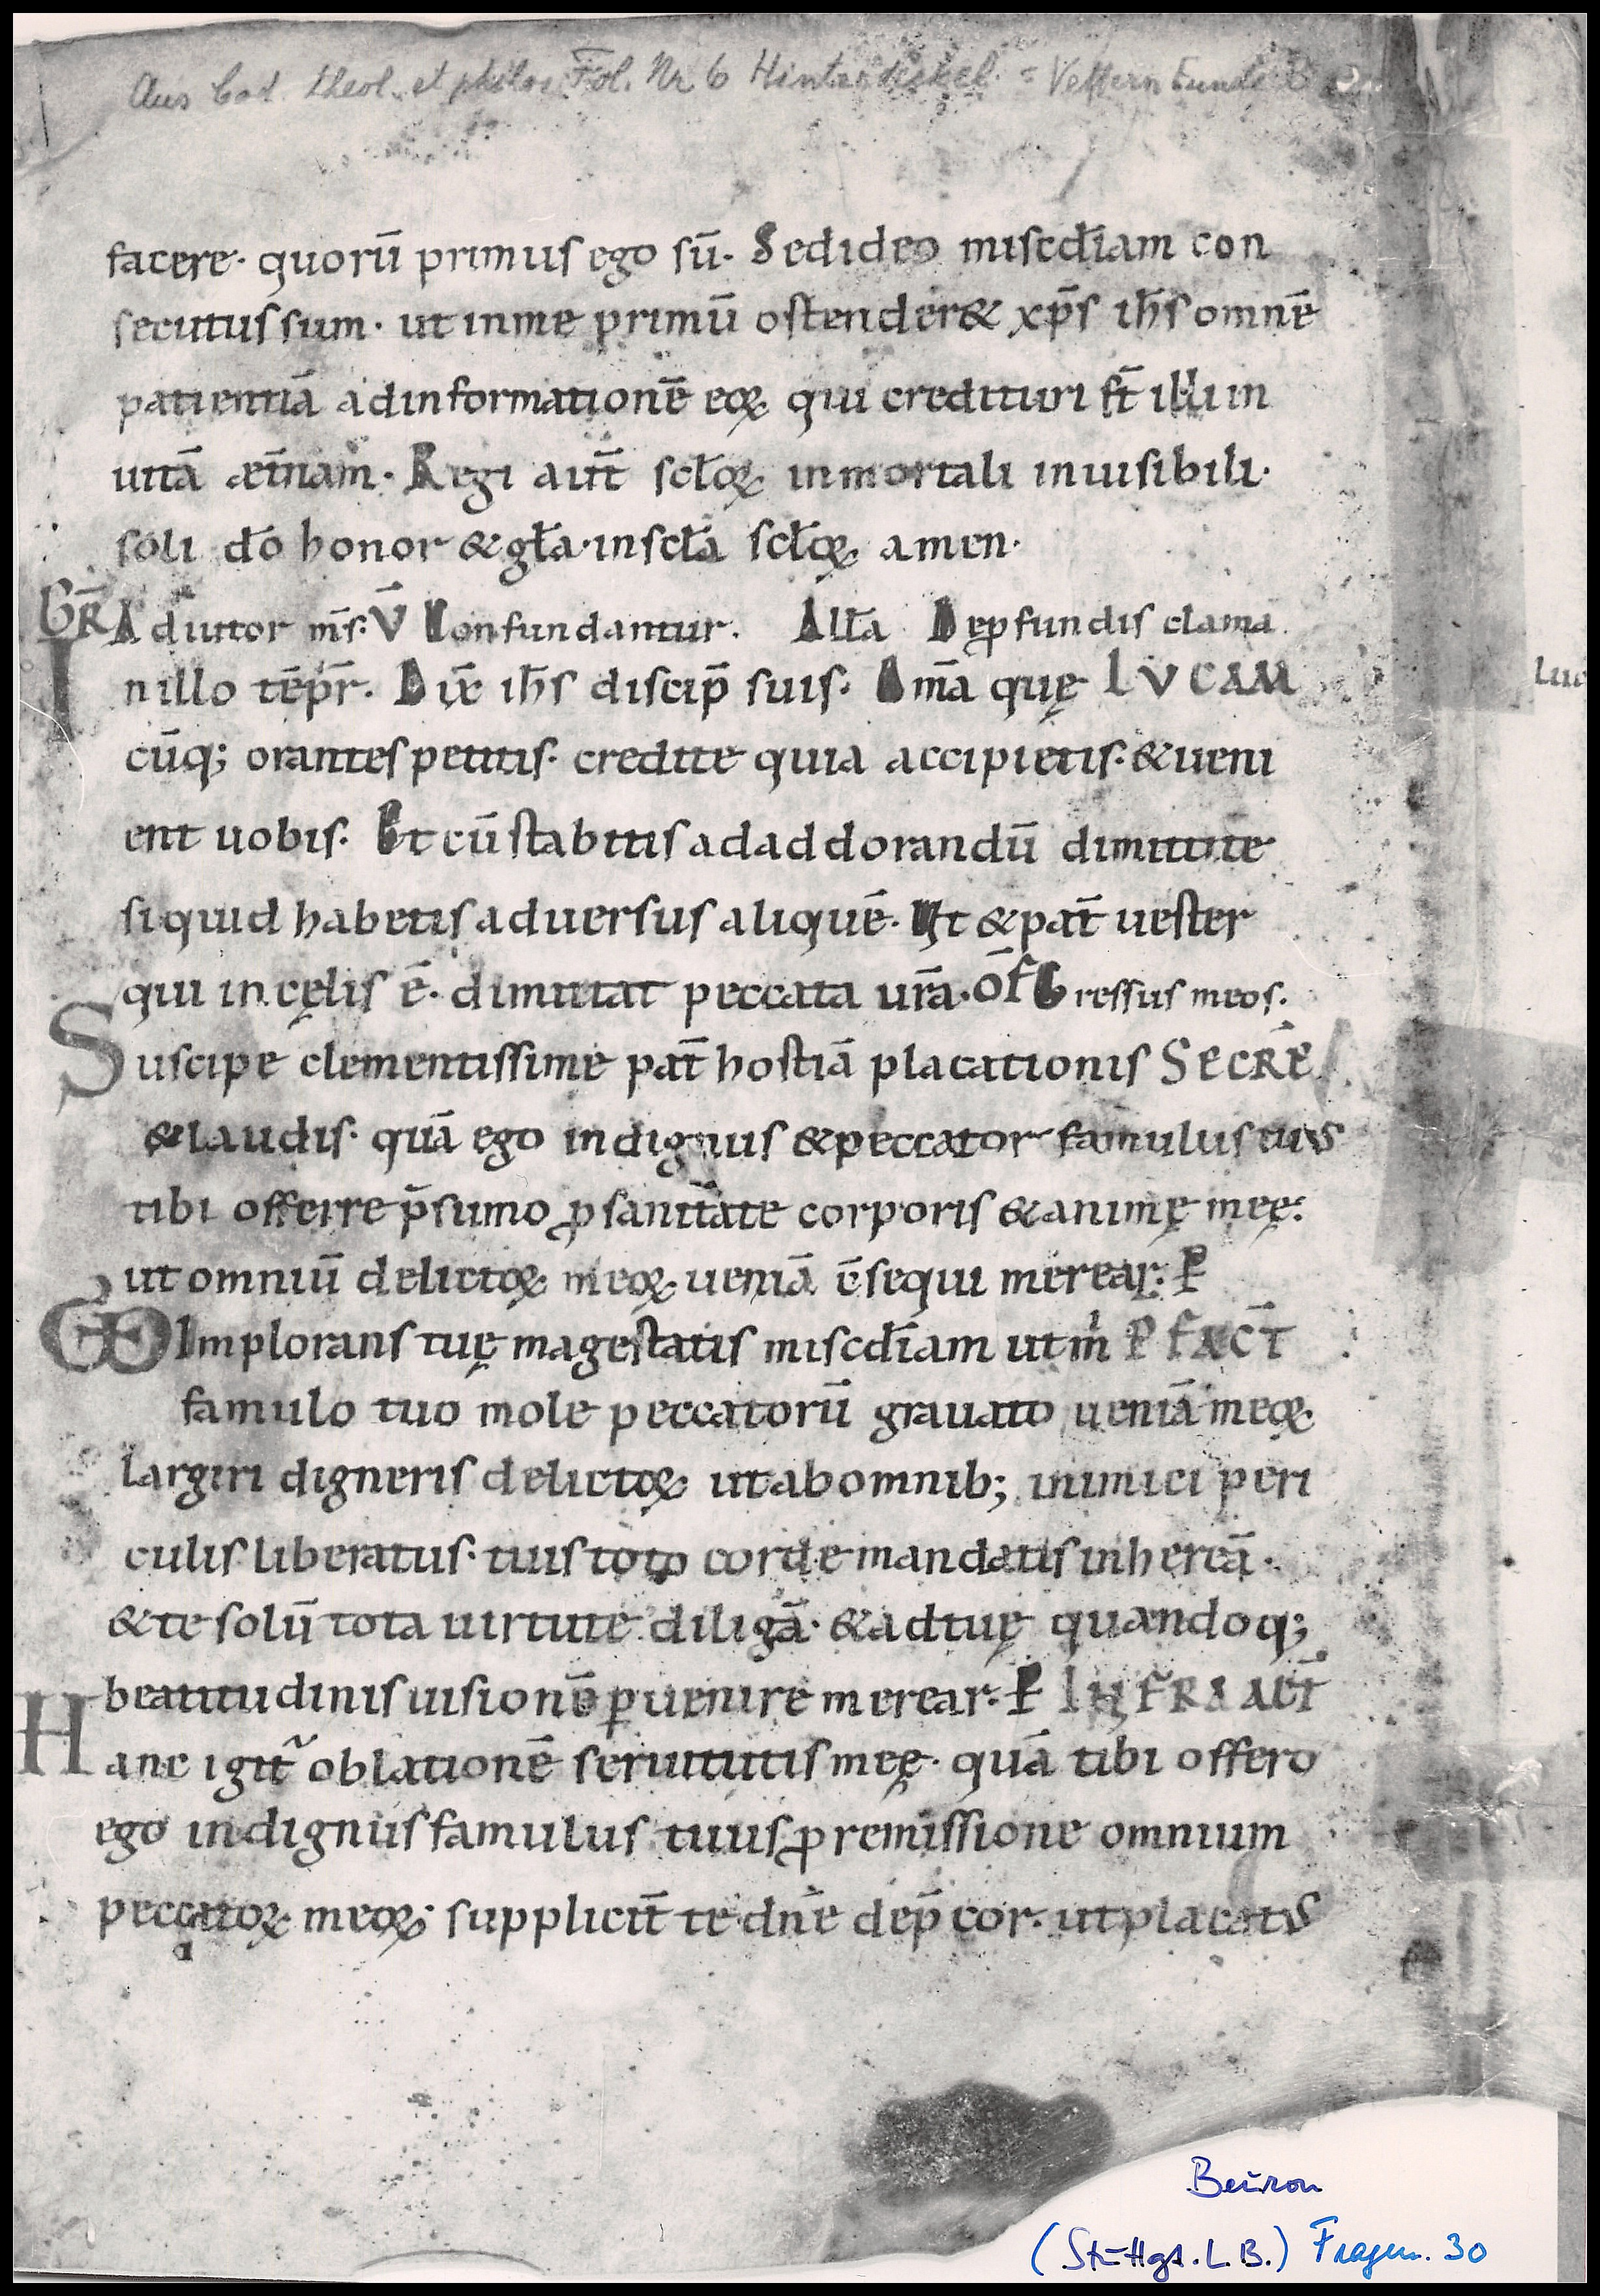 Aus Cod. theol. et philos. Fol. Nr 6 Hinterdeckel =
facere· quorū primus ego sū· Sed ideo miscd̄iam con
secutus sum· ut in me primū ostender& xp̄s ih̄s omnē
patientiā ad informationē eoꝝ qui credituri st̄ illi in
uitā æt̄nam· Regi aut̄ scl̄oꝝ inmortali inuisibili·
soli dō honor & gl̄a· in scl̄a scl̄oꝝ amen·
GR̄ Adiutor m̄s· V̄ Confundantur. All̄a De ꝓfundis clama
In illo tēpr̄. Dix̄ ih̄s discip̄ suis· Om̄a quę LVCAM
cūq; orantes petitis· credite quia accipietis· & ueni
ent uobis· Et cū stabitis ad addorandū dimittite
si quid habetis aduersus aliquē· Ut & pat̄ uester
qui in cęlis ē· dimittat peccata ur̄a· Ōf Gressus meos·
Suscipe clementissime pat̄ hostiā placationis SECRĒ
& laudis· quā ego indignus & peccator famulus tuus
tibi offerre p̄sumo ꝓ sanitate corporis & animę męę:
ut omniū delictoꝝ meoꝝ ueniā c̄sequi merear: P
Implorans tuę magestatis miscd̄iam ut m̄ P FACT̄
famulo tuo mole peccatorū grauato ueniā meoꝝ
largiri digneris delictoꝝ ut ab omnib; inimici peri
culis liberatus· tuis toto corde mandatis inhereā·
& te solū tota uirtute diligā· & ad tuę quandoq;
beatitudinis uisionē ꝑuenire merear· P INFRA ACT̄
Hanc igit̄ oblationē seruitutis meę· quā tibi offero
ego indignus famulus tuus ꝓ remissione omnium
peccatoꝝ meoꝝ· supplicit̄ te dn̄e dep̄cor· ut placatus
Luc
Beuron
(Stuttgt. L. B.) Fragm. 30